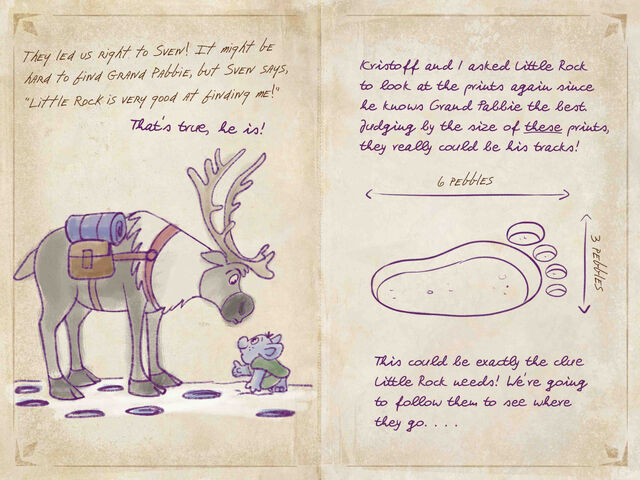 They led us right to Sven! It might be
hard to find Grand Pabbie, but Sven says,
"Little Rock is very good at finding me!"
That's true, he is!
Kristoff and I asked Little Rock
to look at the prints again since
he knows Grand Pabbie the best.
Judging by the size of these prints,
they really could be his tracks!
6 pebbles
3 pebbles
This could be exactly the clue
Little Rock needs! We're going
to follow them to see where
they go. . . .